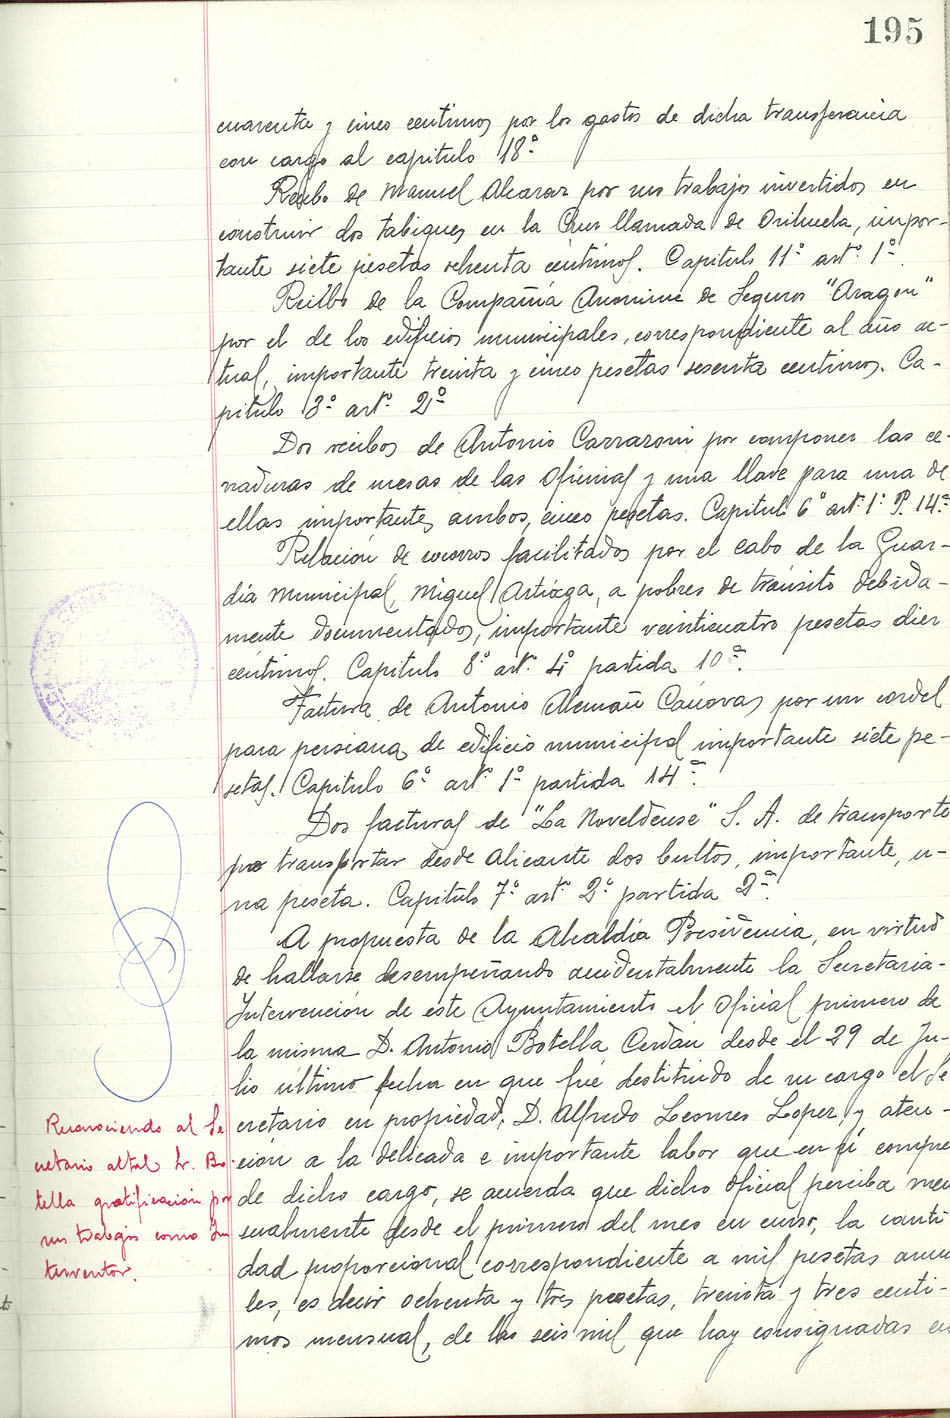 195
cuarenta y cinco centimos por los gastos de dicha transferencia
con cargo al capitulo 18º
Recibo de Manuel Alcaraz por sus trabajos invertidos en
construir dos tabiques en la Cruz llamada de Orihuela, impor-
tante siete pesetas ochenta céntimos. Capitulo 11º artº 1º.
Recibo de la Compañia Anonima de Seguros "Aragon"
por el de los edificios municipales, correspondiente al año ac-
tual, importante treinta y cinco pesetas sesenta centimos. Ca-
pitulo 3º artº 2º
Dos recibos de Antonio Carrazoni por componer las ce-
rraduras de mesas de las Oficinas y una llave para una de
ellas importantes ambos, cinco pesetas. Capitulo 6º artº 1º P. 14ª
Relación de socorros facilitados por el cabo de la Guar-
dia Municipal, Miguel Artiaga, a pobres de tránsito debida-
mente documentados, importante veinticuatro pesetas diez
céntimos. Capitulo 8º artº 4º partida 10ª.
Factura de Antonio Alemañ Cánovas por un cordel
para persianas de edificio municipal importante siete pe-
setas. Capitulo 6º artº 1º partida 14ª.
Dos facturas de "La Noveldense" S. A. de transporte
por transportar desde Alicante dos bultos, importante, u-
na peseta. Capitulo 7º artº 2º partida 2ª.
A propuesta de la Alcaldía Presidencia, en virtud
de hallarse desempeñando accidentalmente la Secretaria-
Intervención de este Ayuntamiento el Oficial primero de
la misma D. Antonio Botella Cerdán desde el 29 de Ju-
lio último fecha en que fué destituido de su cargo el Se
cretario en propiedad, D. Alfredo Lopez, y aten-
ción a la delicada e importante labor que en sí compre
de dicho cargo, se acuerda que dicho Oficial perciba men
sualmente desde el primero del mes en curso, la canti
dad proporcional correspondiente a mil pesetas anua
les, es decir ochenta y tres pesetas, treinta y tres centi-
mos mensual, de las seis mil que hay consignadas en
Reconociendo al Se
cretario actal Sr. Bo-
tella gratificación por
sus trabajos como In
terventor.